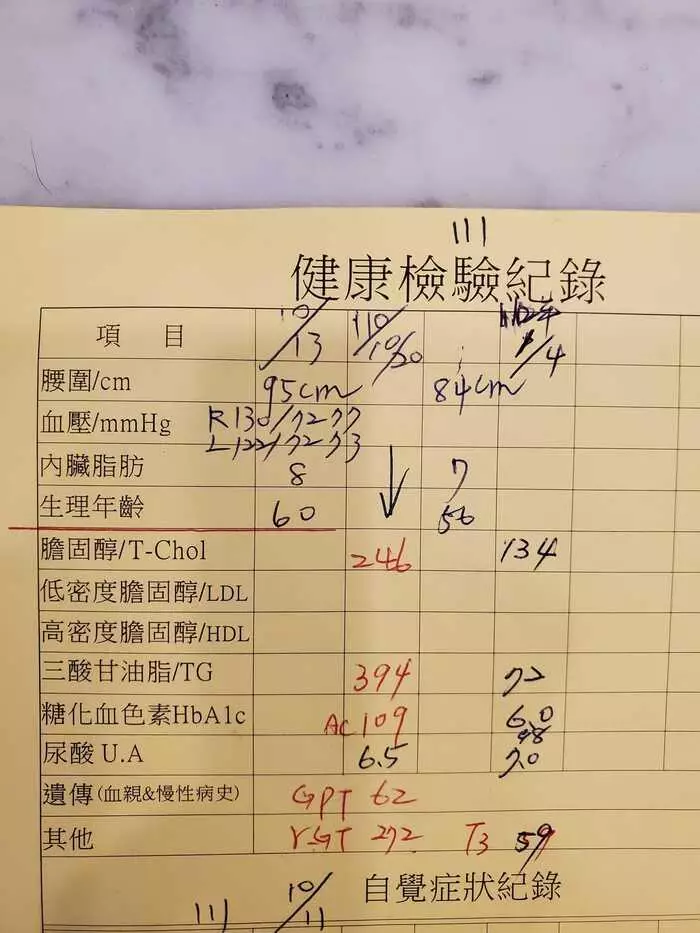 111
健康檢驗紀錄
項 目 10/13 110 10/20 1/4
腰圍/cm 95cm 84cm
血壓/mmHg R130/72 77
L122/72 73
內臟脂肪 8 7
生理年齡 60 56
膽固醇/T-Chol 246 134
低密度膽固醇/LDL
高密度膽固醇/HDL
三酸甘油脂/TG 394 72
糖化血色素HbA1c AC 109 6.0
98
尿酸 U.A 6.5 7.0
遺傳(血親&慢性病史) GPT 62
其他 rGT 272 T3 59
自覺症狀紀錄
111 10/11